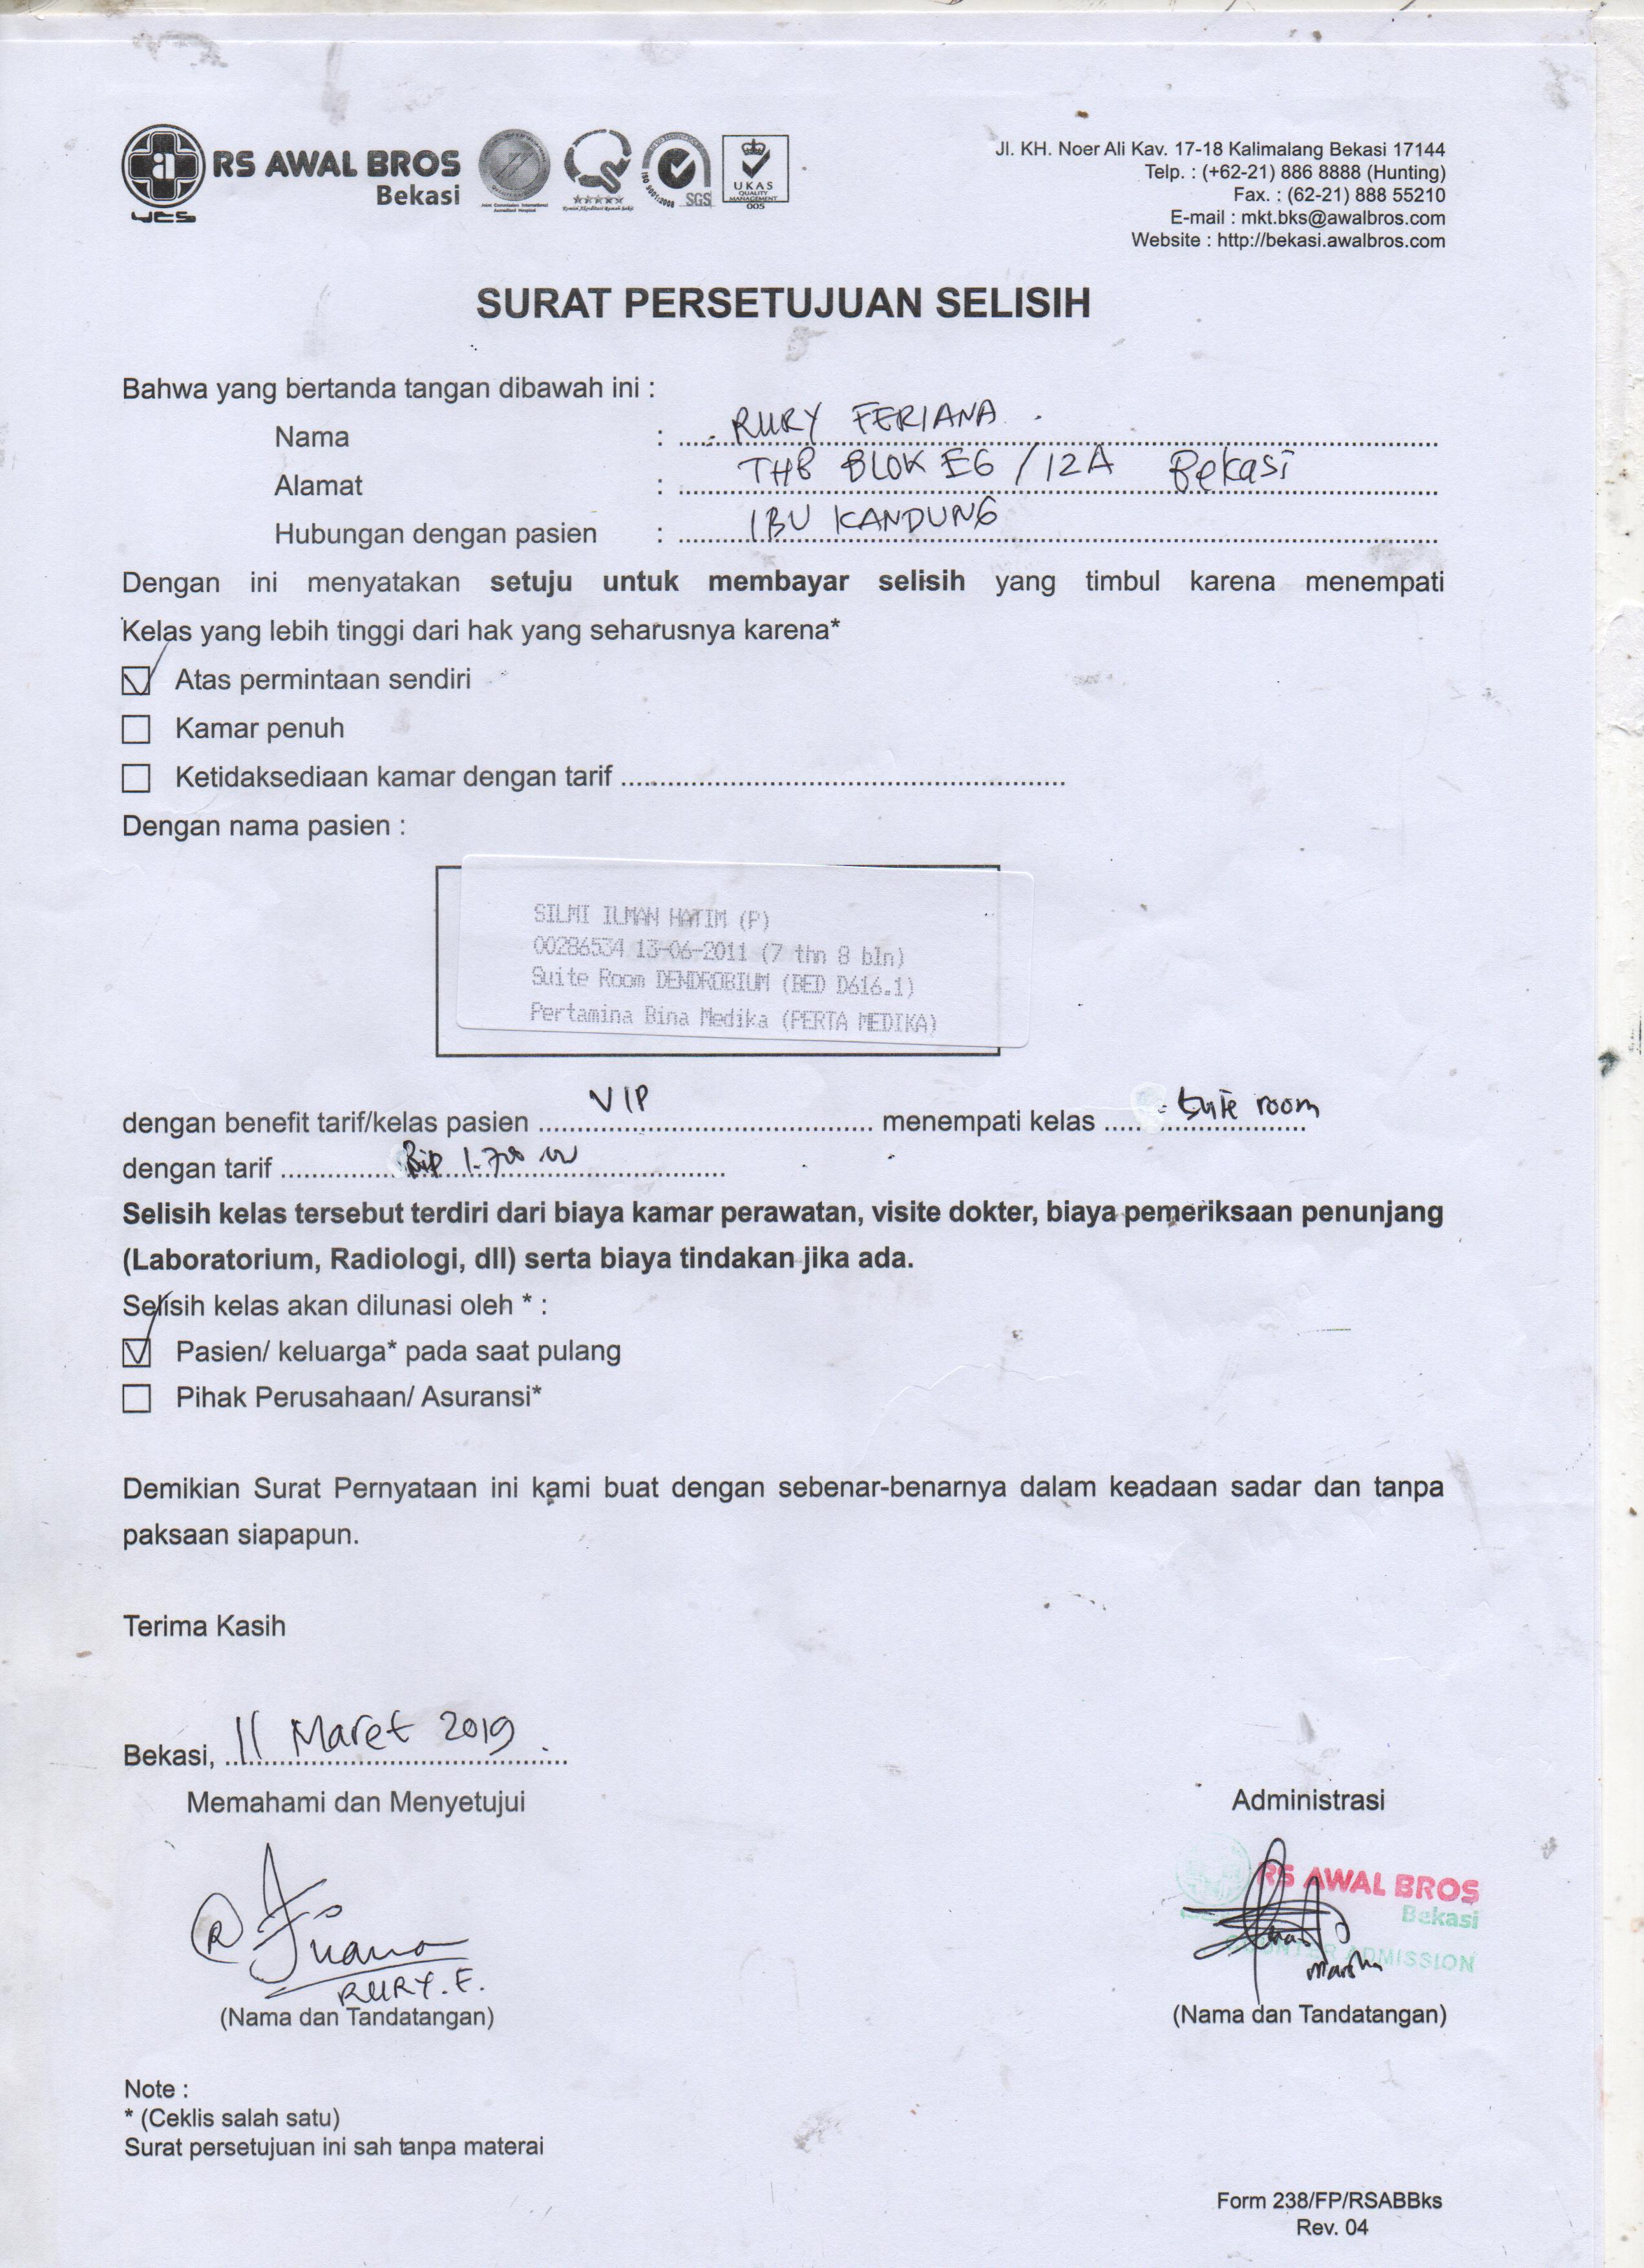 RS AWAL BROS
Bekasi
Joint Commission International
Accredited Hospital
ISO 9001:2008
SGS
UKAS
QUALITY
MANAGEMENT
005
Jl. KH. Noer Ali Kav. 17-18 Kalimalang Bekasi 17144
Telp. : (+62-21) 886 8888 (Hunting)
Fax. : (62-21) 888 55210
E-mail : mkt.bks@awalbros.com
Website : http://bekasi.awalbros.com
SURAT PERSETUJUAN SELISIH
Bahwa yang bertanda tangan dibawah ini :
Nama : RURY FERIANA
Alamat : THB BLOK E6 / 12A Bekasi
Hubungan dengan pasien : IBU KANDUNG
Dengan ini menyatakan setuju untuk membayar selisih yang timbul karena menempati
Kelas yang lebih tinggi dari hak yang seharusnya karena*
Atas permintaan sendiri
Kamar penuh
Ketidaksediaan kamar dengan tarif ......................................................
Dengan nama pasien :
SILMI ILMAN HATIM (P)
00286534 13-06-2011 (7 thn 8 bln)
Suite Room DENDROBIUM (BED D616.1)
Pertamina Bina Medika (PERTA MEDIKA)
dengan benefit tarif/kelas pasien VIP menempati kelas Suite room
dengan tarif
Selisih kelas tersebut terdiri dari biaya kamar perawatan, visite dokter, biaya pemeriksaan penunjang
(Laboratorium, Radiologi, dll) serta biaya tindakan jika ada.
Selisih kelas akan dilunasi oleh * :
Pasien/ keluarga* pada saat pulang
Pihak Perusahaan/ Asuransi*
Demikian Surat Pernyataan ini kami buat dengan sebenar-benarnya dalam keadaan sadar dan tanpa
paksaan siapapun.
Terima Kasih
Bekasi, 11 Maret 2019
Memahami dan Menyetujui
Administrasi
RS AWAL BROS
Bekasi
COUNTER ADMISSION
RURY. F.
(Nama dan Tandatangan)
(Nama dan Tandatangan)
Note :
* (Ceklis salah satu)
Surat persetujuan ini sah tanpa materai
Form 238/FP/RSABBks
Rev. 04